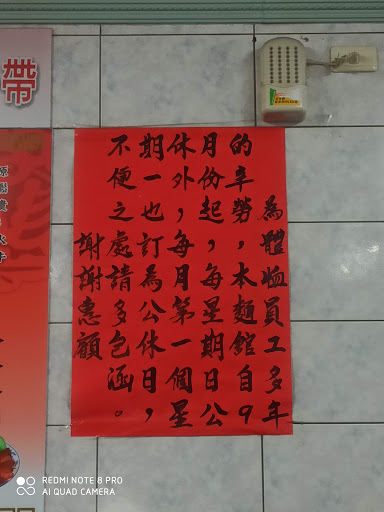 為體恤員工多年
的辛勞，本麵館自9
月份起，每星期日公
休外，每月第一個星
期一也訂為公休日，
不便之處請多包涵。
謝謝惠顧
帶
REDMI NOTE 8 PRO
AI QUAD CAMERA